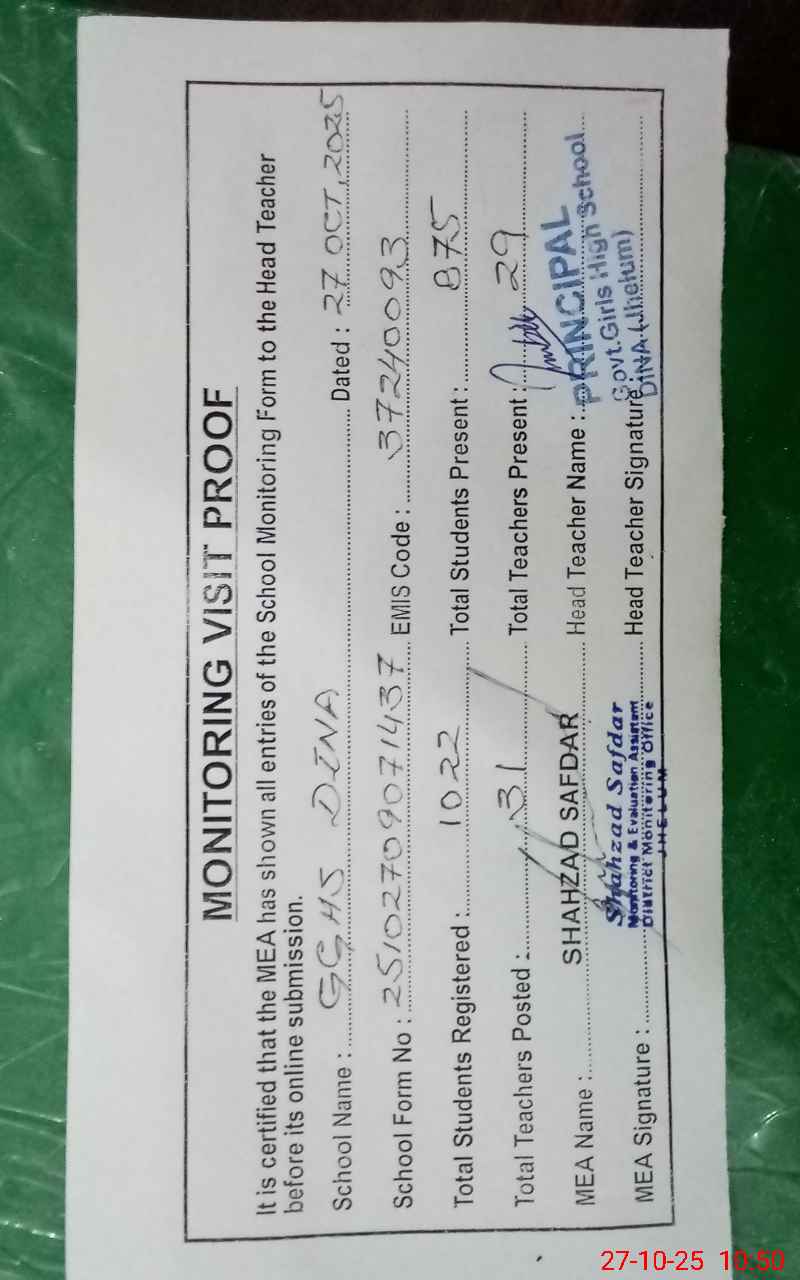 MONITORING VISIT PROOF
It is certified that the MEA has shown all entries of the School Monitoring Form to the Head Teacher
before its online submission.
School Name : GGHS DINA Dated : 27 OCT, 2025
School Form No : 25102709071437 EMIS Code : 37240093
Total Students Registered : 1022 Total Students Present : 875
Total Teachers Posted : 31 Total Teachers Present : 29
MEA Name : SHAHZAD SAFDAR Head Teacher Name :
PRINCIPAL
Govt. Girls High School
DINA (Jhelum)
MEA Signature : Head Teacher Signature :
Shahzad Safdar
Monitoring & Evaluation Assistant
District Monitoring Office
JHELUM
27-10-25 10:50